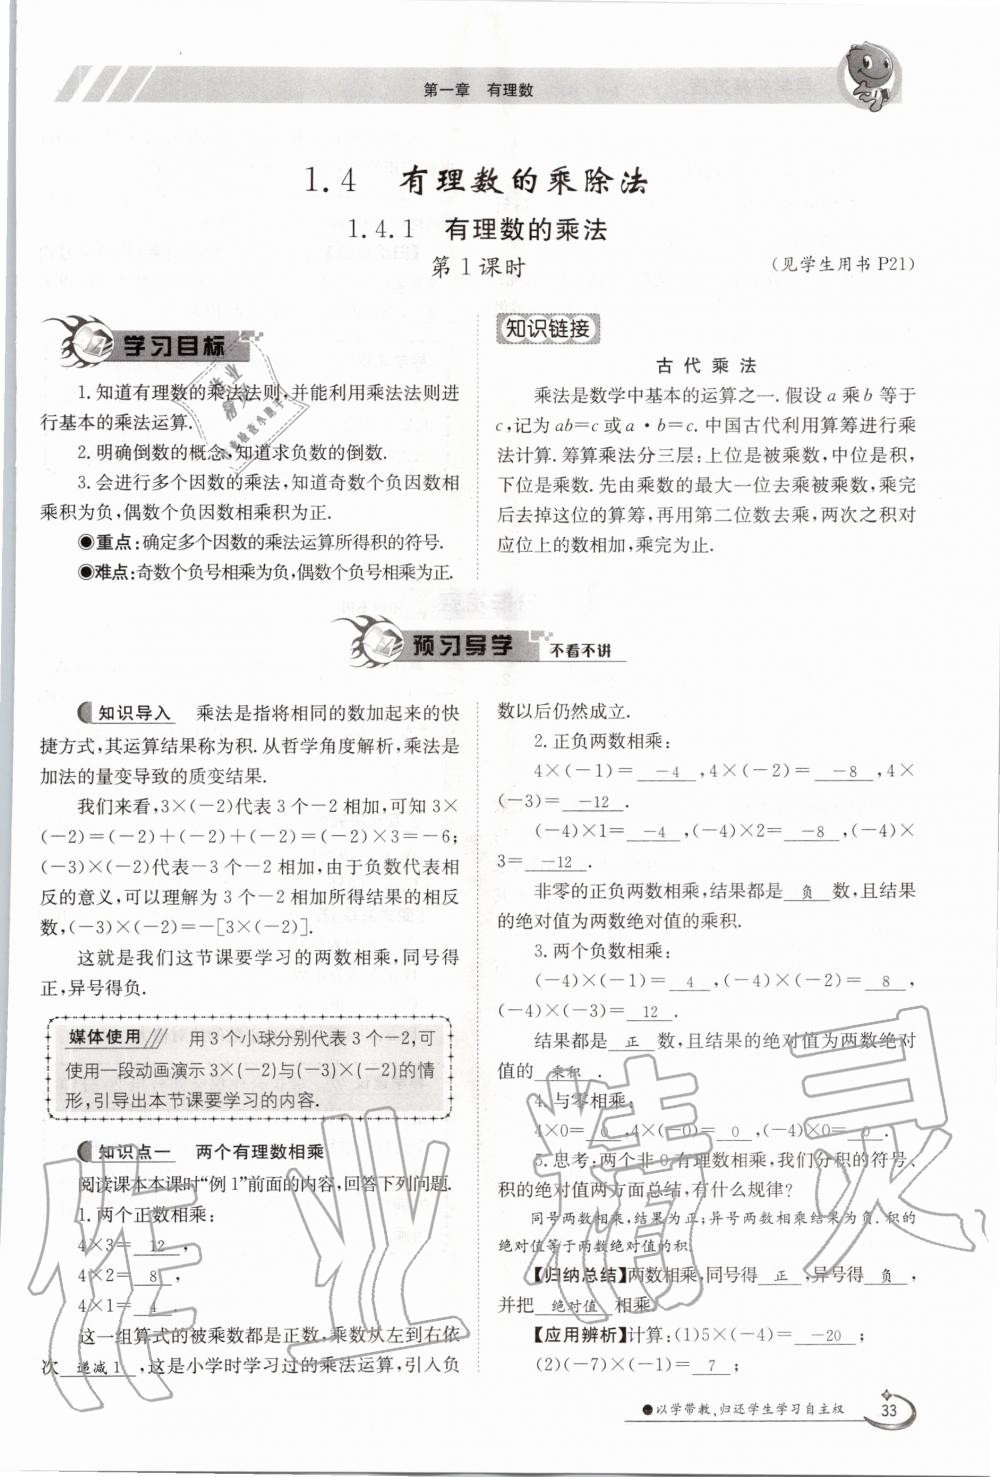 第一章 有理数
1.4 有理数的乘除法
1.4.1 有理数的乘法
第1课时
(见学生用书 P21)
学习目标
1.知道有理数的乘法法则,并能利用乘法法则进
行基本的乘法运算.
2.明确倒数的概念,知道求负数的倒数.
3.会进行多个因数的乘法,知道奇数个负因数相
乘积为负,偶数个负因数相乘积为正.
●重点:确定多个因数的乘法运算所得积的符号.
●难点:奇数个负号相乘为负,偶数个负号相乘为正.
知识链接
古代乘法
乘法是数学中基本的运算之一.假设 a 乘 b 等于
c,记为 ab=c 或 a·b=c.中国古代利用算筹进行乘
法计算.筹算乘法分三层:上位是被乘数,中位是积,
下位是乘数.先由乘数的最大一位去乘被乘数,乘完
后去掉这位的算筹,再用第二位数去乘,两次之积对
应位上的数相加,乘完为止.
预习导学 不看不讲
知识导入 乘法是指将相同的数加起来的快
捷方式,其运算结果称为积.从哲学角度解析,乘法是
加法的量变导致的质变结果.
我们来看,3×(-2)代表 3 个-2 相加,可知 3×
(-2)=(-2)+(-2)+(-2)=(-2)×3=-6;
(-3)×(-2)代表-3 个-2 相加,由于负数代表相
反的意义,可以理解为 3 个-2 相加所得结果的相反
数,(-3)×(-2)=-[3×(-2)].
这就是我们这节课要学习的两数相乘,同号得
正,异号得负.
媒体使用 用 3 个小球分别代表 3 个-2,可
使用一段动画演示 3×(-2)与(-3)×(-2)的情
形,引导出本节课要学习的内容.
知识点一 两个有理数相乘
阅读课本本课时“例 1”前面的内容,回答下列问题.
1.两个正数相乘:
4×3= 12 ,
4×2= 8 ,
4×1= 4 .
这一组算式的被乘数都是正数,乘数从左到右依
次 递减 1 ,这是小学时学习过的乘法运算,引入负
数以后仍然成立.
2.正负两数相乘:
4×(-1)= -4 ,4×(-2)= -8 ,4×
(-3)= -12 .
(-4)×1= -4 ,(-4)×2= -8 ,(-4)×
3= -12 .
非零的正负两数相乘,结果都是 负 数,且结果
的绝对值为两数绝对值的乘积.
3.两个负数相乘:
(-4)×(-1)= 4 ,(-4)×(-2)= 8 ,
(-4)×(-3)= 12 .
结果都是 正 数,且结果的绝对值为两数绝对
值的 乘积 .
4.与零相乘:
4×0= 0 ,4×(-0)= 0 ,(-4)×0= 0 .
5.思考:两个非 0 有理数相乘,我们分积的符号、
积的绝对值两方面总结,有什么规律?
同号两数相乘,结果为正;异号两数相乘结果为负.积的
绝对值等于两数绝对值的积.
【归纳总结】两数相乘,同号得 正 ,异号得 负 ,
并把 绝对值 相乘.
【应用辨析】计算:(1)5×(-4)= -20 ;
(2)(-7)×(-1)= 7 ;
●以学带教,归还学生学习自主权
33
作业精灵